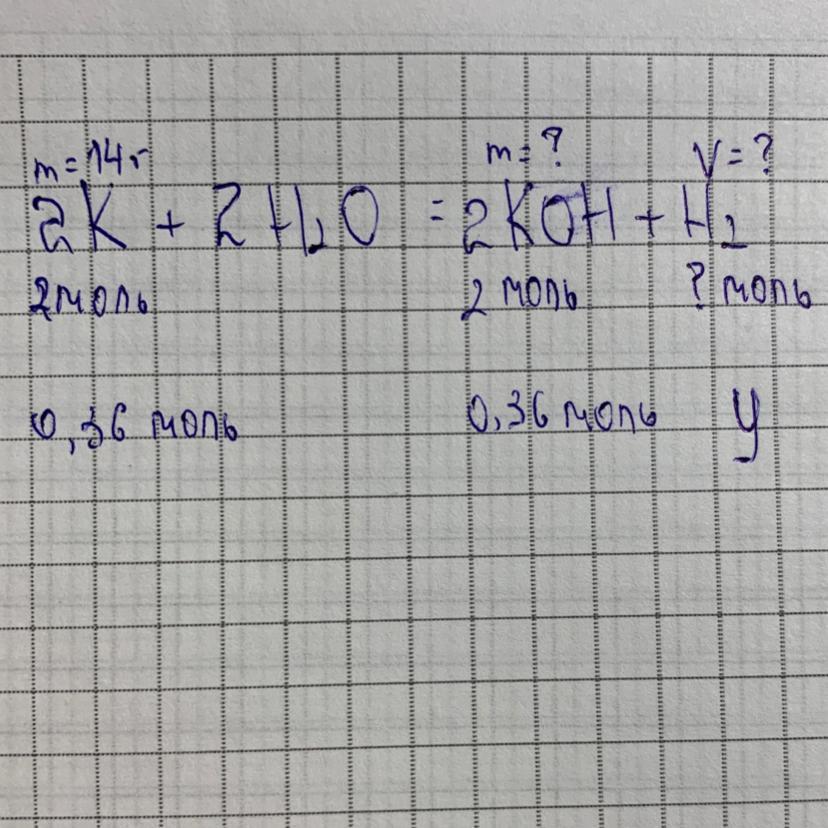 m = 14г m = ? V = ?
2K + 2H₂O = 2KOH + H₂
2моль 2 моль ? моль
0,36 моль 0,36 моль y